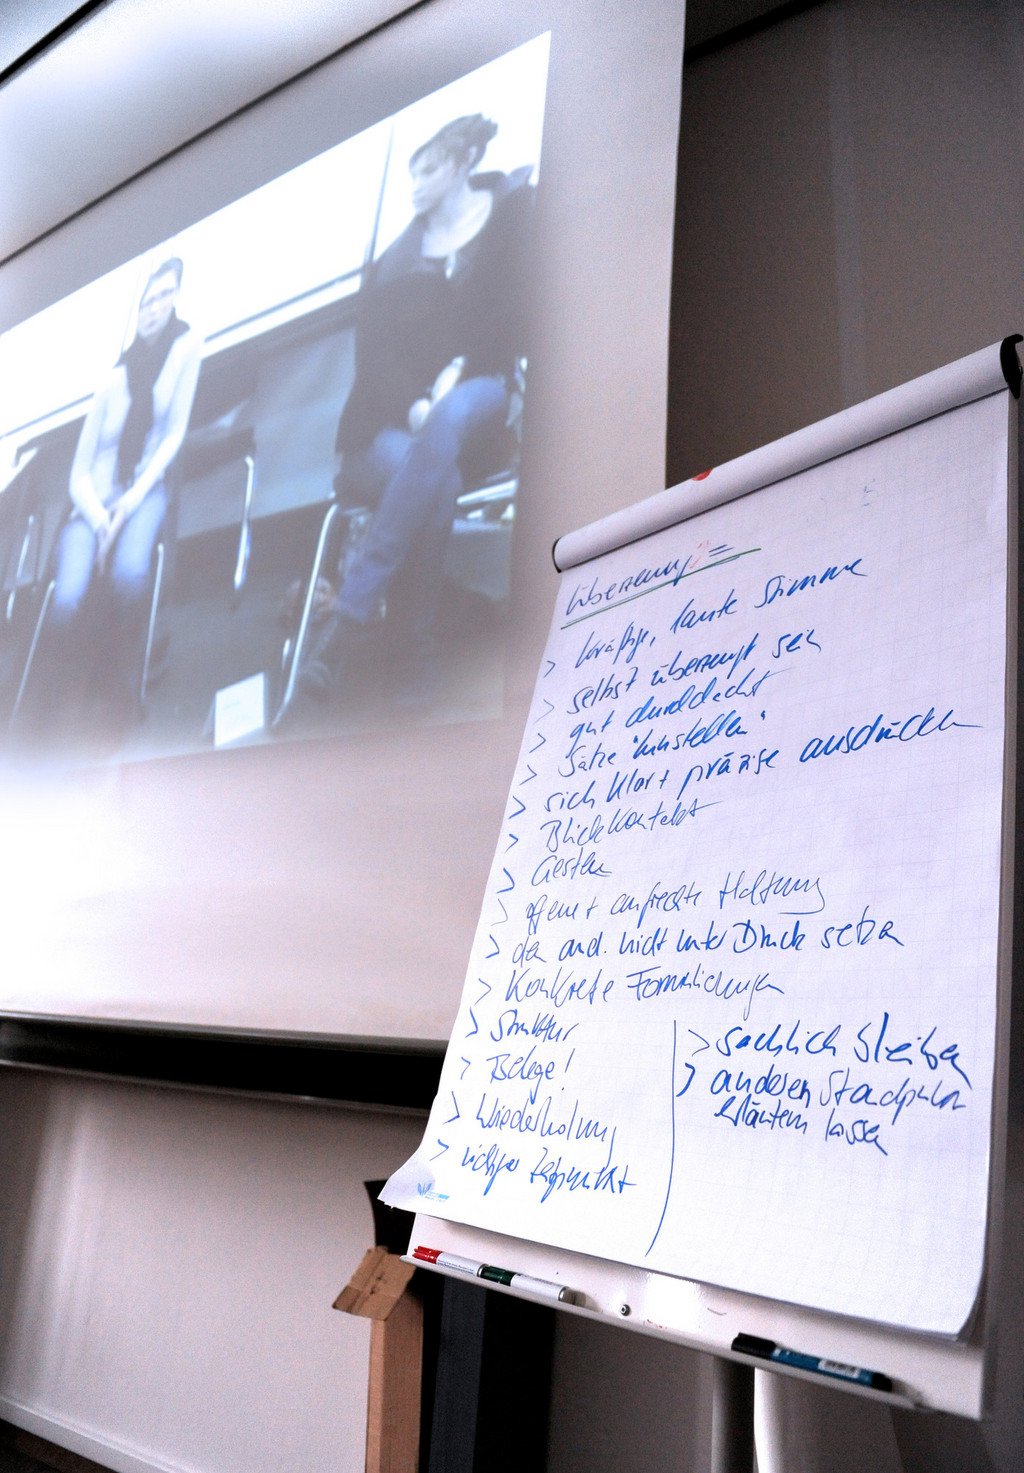 Überzeung =
> kräftige, laute Stimme
> selbst überzeugt sein
> gut durchdacht
> Sätze "hinstellen"
> sich klar + präzise ausdrücken
> Blickkontakt
> Gesten
> offene + aufrechte Haltung
> den and. nicht unter Druck setzen
> Konkrete Formulierungen
> Struktur
> Belege!
> Wiederholung
> richtiger Zeitpunkt
> sachlich bleiben
> anderen Standpunkt
erläutern lassen